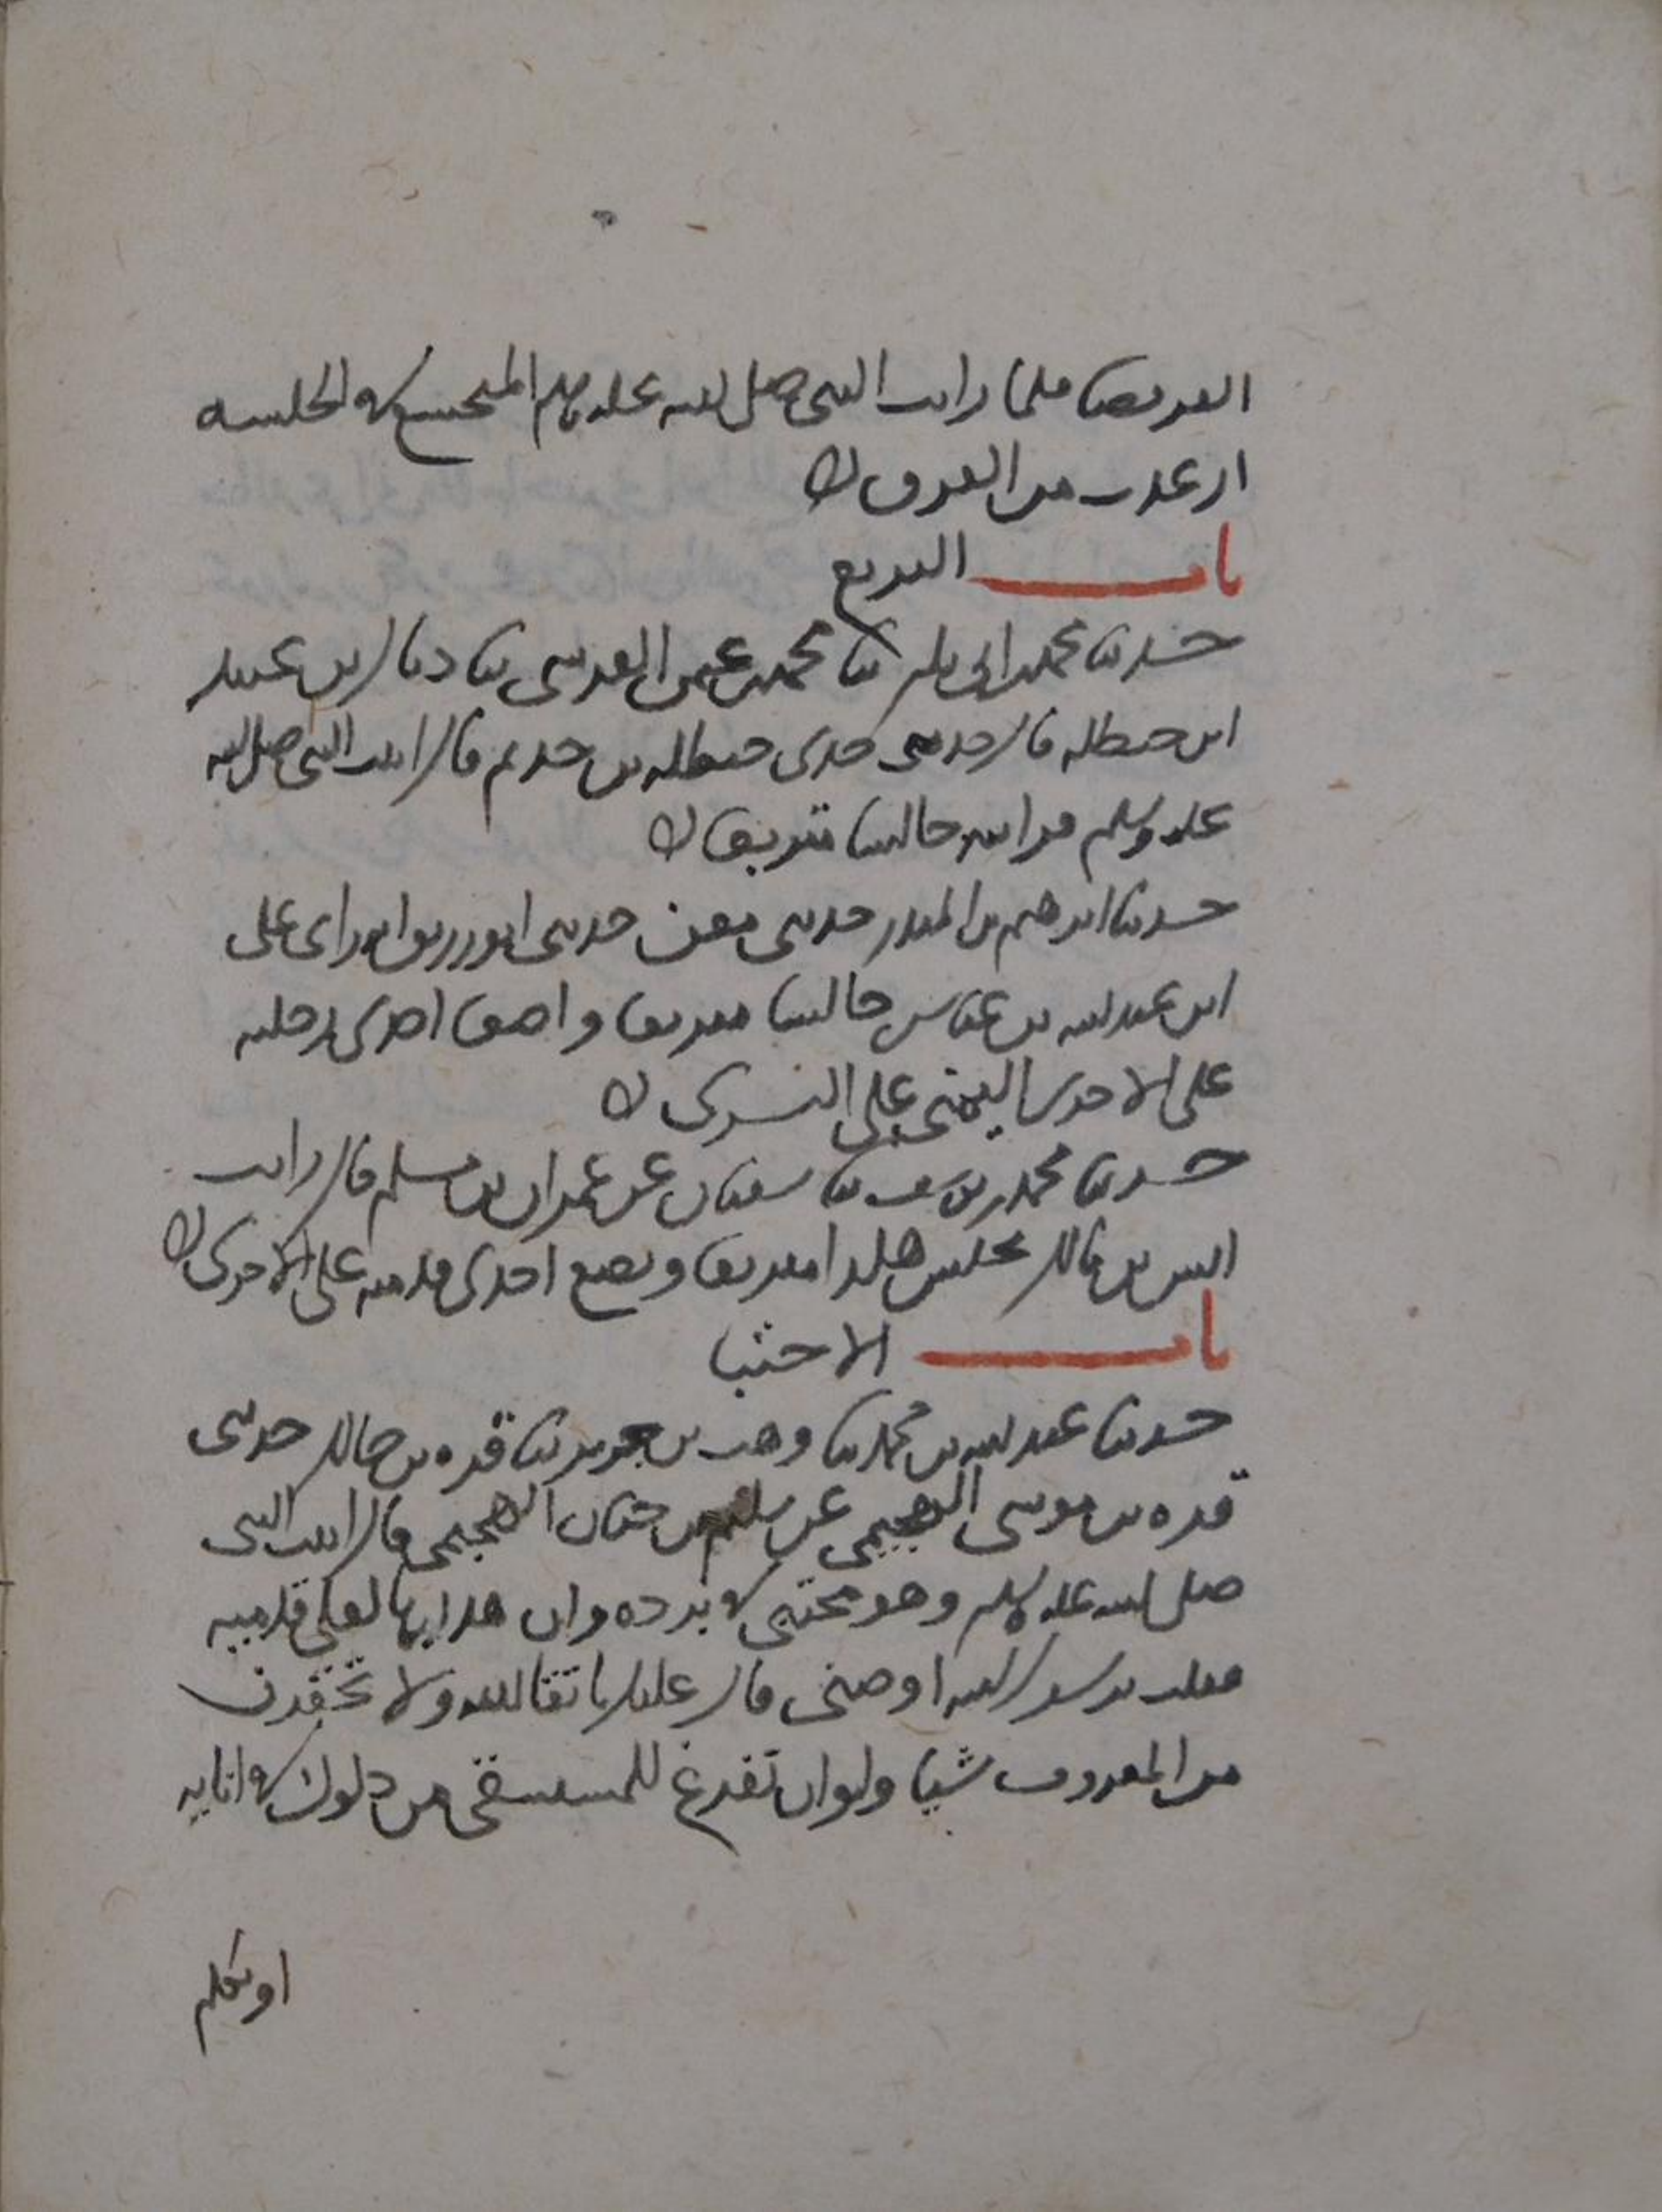 القرفصا فلما رايت النبي صلى الله عليه وسلم المتخشع في الجلسة
ارعدت من الفرق ه
باب التربع
حدثنا محمد بن ابي بكر ثنا محمد بن عثمن القرشي ثنا ذيال بن عبيد
ابن حنظله قال حدثني جدي حنظله بن حذيم قال رايت النبي صلى الله
عليه وسلم فرايته جالسا متربعا ه
حدثنا ابرهيم بن المنذر حدثني معن حدثني ابو رزيق انه راى علي
ابن عبد الله بن عباس جالسا متربعا واضعا احدى رجليه
على الاخرى اليمنى على اليسرى ه
حدثنا محمد بن يوسف ثنا سفيان عن عمران بن مسلم قال رايت
انس بن مالك يجلس هكذا متربعا ويضع احدى قدميه على الاخرى ه
باب الاحتبا
حدثنا عبد الله بن محمد ثنا وهب بن جرير ثنا قره بن خالد حدثني
قره بن موسى الهجيمي عن سليم بن جابر الهجيمي قال رايت النبي
صلى الله عليه وسلم وهو محتبي في برده وان هدابها لعلى قدميه
فقلت يرسول الله اوصني قال عليك باتقا الله ولا تحقرن
من المعروف شيا ولو ان تفرغ للمستسقي من دلوك في انايه
او تكلم